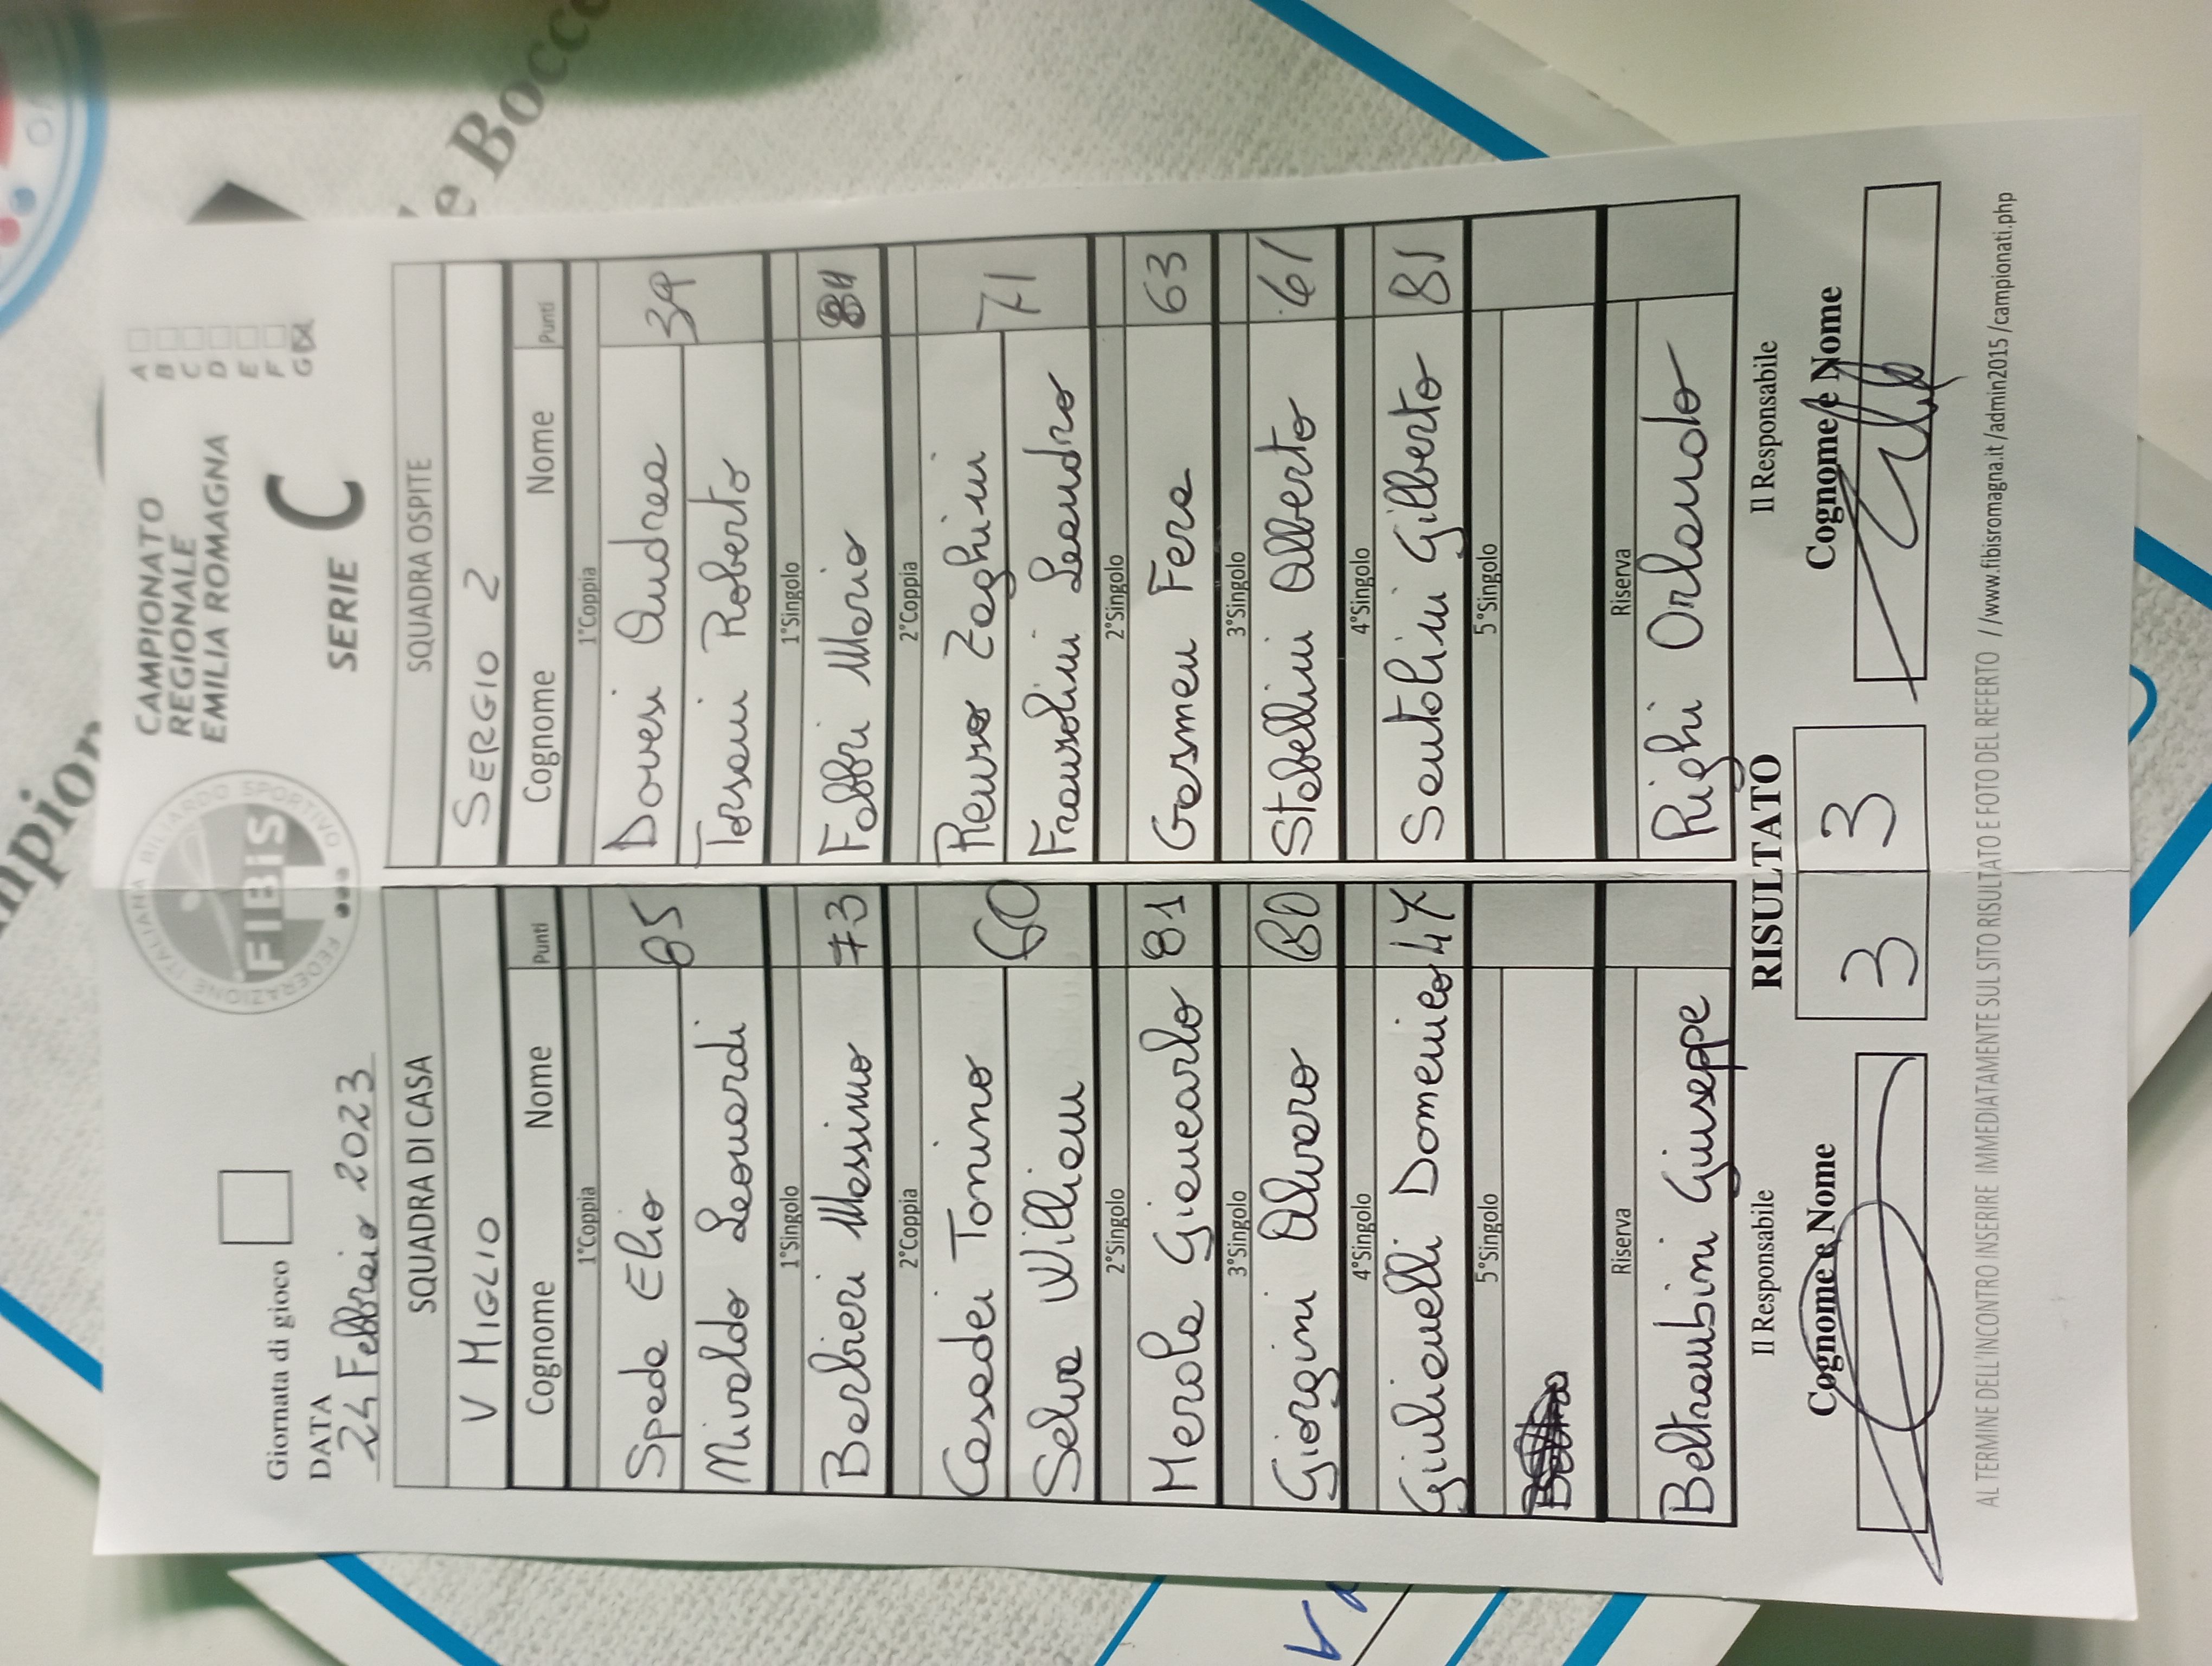 Giornata di gioco
DATA
24 Febbraio 2023
FEDERAZIONE ITALIANA BILIARDO SPORTIVO
FIBiS
CAMPIONATO
REGIONALE
EMILIA ROMAGNA
SERIE C
A
B
C
D
E
F
G
SQUADRA DI CASA SQUADRA OSPITE
V MIGLIO SERGIO 2
Cognome Nome Punti Cognome Nome Punti
1°Coppia 1°Coppia
Spada Elio 85 Dovesi Andrea 39
Mivaldo Leonardi Torsani Roberto
1°Singolo 1°Singolo
Barbieri Massimo 73 Fabbri Mario 84
2°Coppia 2°Coppia
Casadei Tonino 60 Renzo Zaghini 71
Selva William Franzolini Leandro
2°Singolo 2°Singolo
Merola Giancarlo 81 Gasmen Fera 63
3°Singolo 3°Singolo
Giorgini Alvaro 80 Stabellini Alberto 61
4°Singolo 4°Singolo
Giulianelli Domenico 47 Santolini Gilberto 81
5°Singolo 5°Singolo
Riserva Riserva
Beltrambini Giuseppe Righi Orlando
Il Responsabile RISULTATO Il Responsabile
Cognome e Nome 3 3 Cognome e Nome
AL TERMINE DELL'INCONTRO INSERIRE IMMEDIATAMENTE SUL SITO RISULTATO E FOTO DEL REFERTO //www.fibisromagna.it/admin2015/campionati.php
e Bocce
mpion